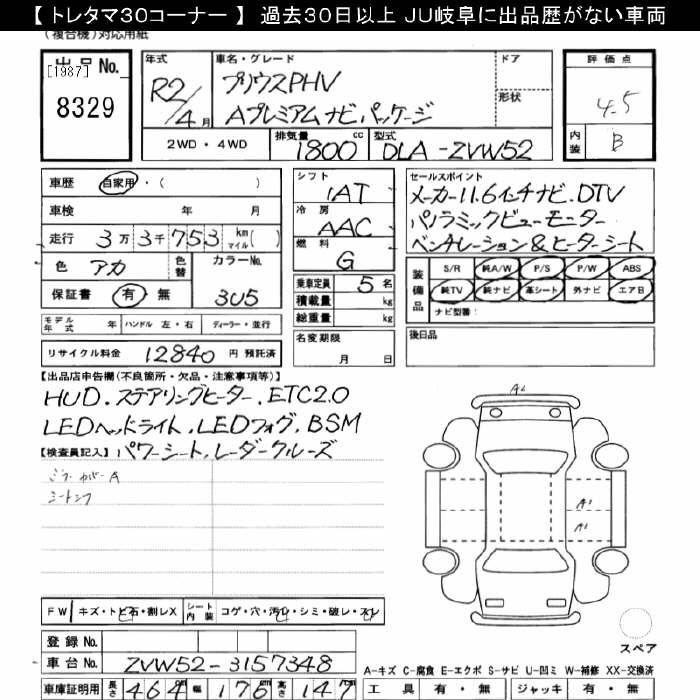 【 トレタマ30コーナー 】 過去30日以上 JU岐阜に出品歴がない車両
(複合機)対応用紙
出品 No. [1987] 8329
年式 R2/4月
車名・グレード プリウスPHV
Aプレミアム ナビパッケージ
ドア
形状
評価点 4.5
内装 B
2WD・4WD
排気量 1800 cc
型式 DLA-ZVW52
車歴 自家用・( )
車検 年 月
走行 3万3千753 km マイル( )
色 アカ 色替 カラーNo. 3U5
保証書 有・無
モデル年式 年 ハンドル 左・右 ディーラー・並行
リサイクル料金 12840 円 預託済
シフト 1AT
冷房 AAC
燃料 G
乗車定員 5 名
積載量 kg
総重量 kg
名変期限
月 日
セールスポイント
メーカー11.6インチナビ.DTV
パノラミックビューモニター
ベンチレーション&ヒーターシート
装備品 S/R 純A/W P/S P/W ABS
純TV 純ナビ 革シート 外ナビ エアB
ナビ型番:
後日品
【出品店申告欄(不良箇所・欠品・注意事項等)】
HUD.ステアリングヒーター.ETC2.0
LEDヘッドライト.LEDフォグ.BSM
【検査員記入】 パワーシート.レーダークルーズ
ミラーカバーA
A1
A1
A1
FW キズ・トビ石・割レX シート内装 コゲ・穴・汚レ・シミ・破レ・スレ
登録 No.
車台 No. ZVW52-3157348
車庫証明用 長さ 464 幅 176 高さ 147
スペア
A-キズ C-腐食 E-エクボ S-サビ U-凹ミ W-補修 XX-交換済
工具 有・無 ジャッキ 有・無